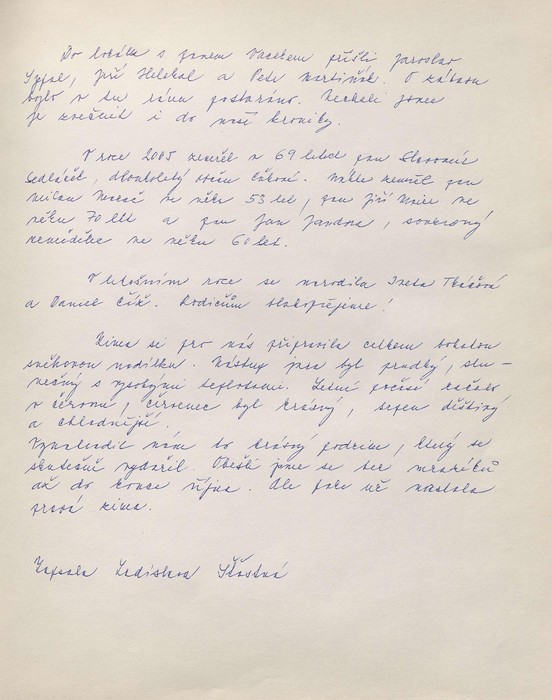 Do lokálu s panem Vackem přišli Jaroslav
Jiří Helekal a Petr Martinák. O zábavu
bylo v tu ránu postaráno. Nechali jsme
je zvěčnit i do naší kroniky.
V roce 2005 zemřel v 69 letech pan Slavomír
Sedláček, dlouholetý občan. Dále zemřel pan
Milan ve věku 53 let, pan Jiří ve
věku 70 let a pan Jan, soukromý
zemědělec ve věku 60 let.
V letošním roce se narodila Iveta Tkáčová
a Daniel Čík. Rodičům blahopřejeme!
Zima si pro nás připravila celkem bohatou
sněhovou nadílku. Nástup jara byl prudký, slu-
nečný s vysokými teplotami. Letní počasí začalo
v červnu, červenec byl krásný, srpen deštivý
a chladnější.
Vynahradit nám to krásný podzim, který se
skutečně vydařil. Obešli jsme se bez mrazíků
až do konce října. Ale pak už nastala
pravá zima.
Zapsala Ladislava Šťastná